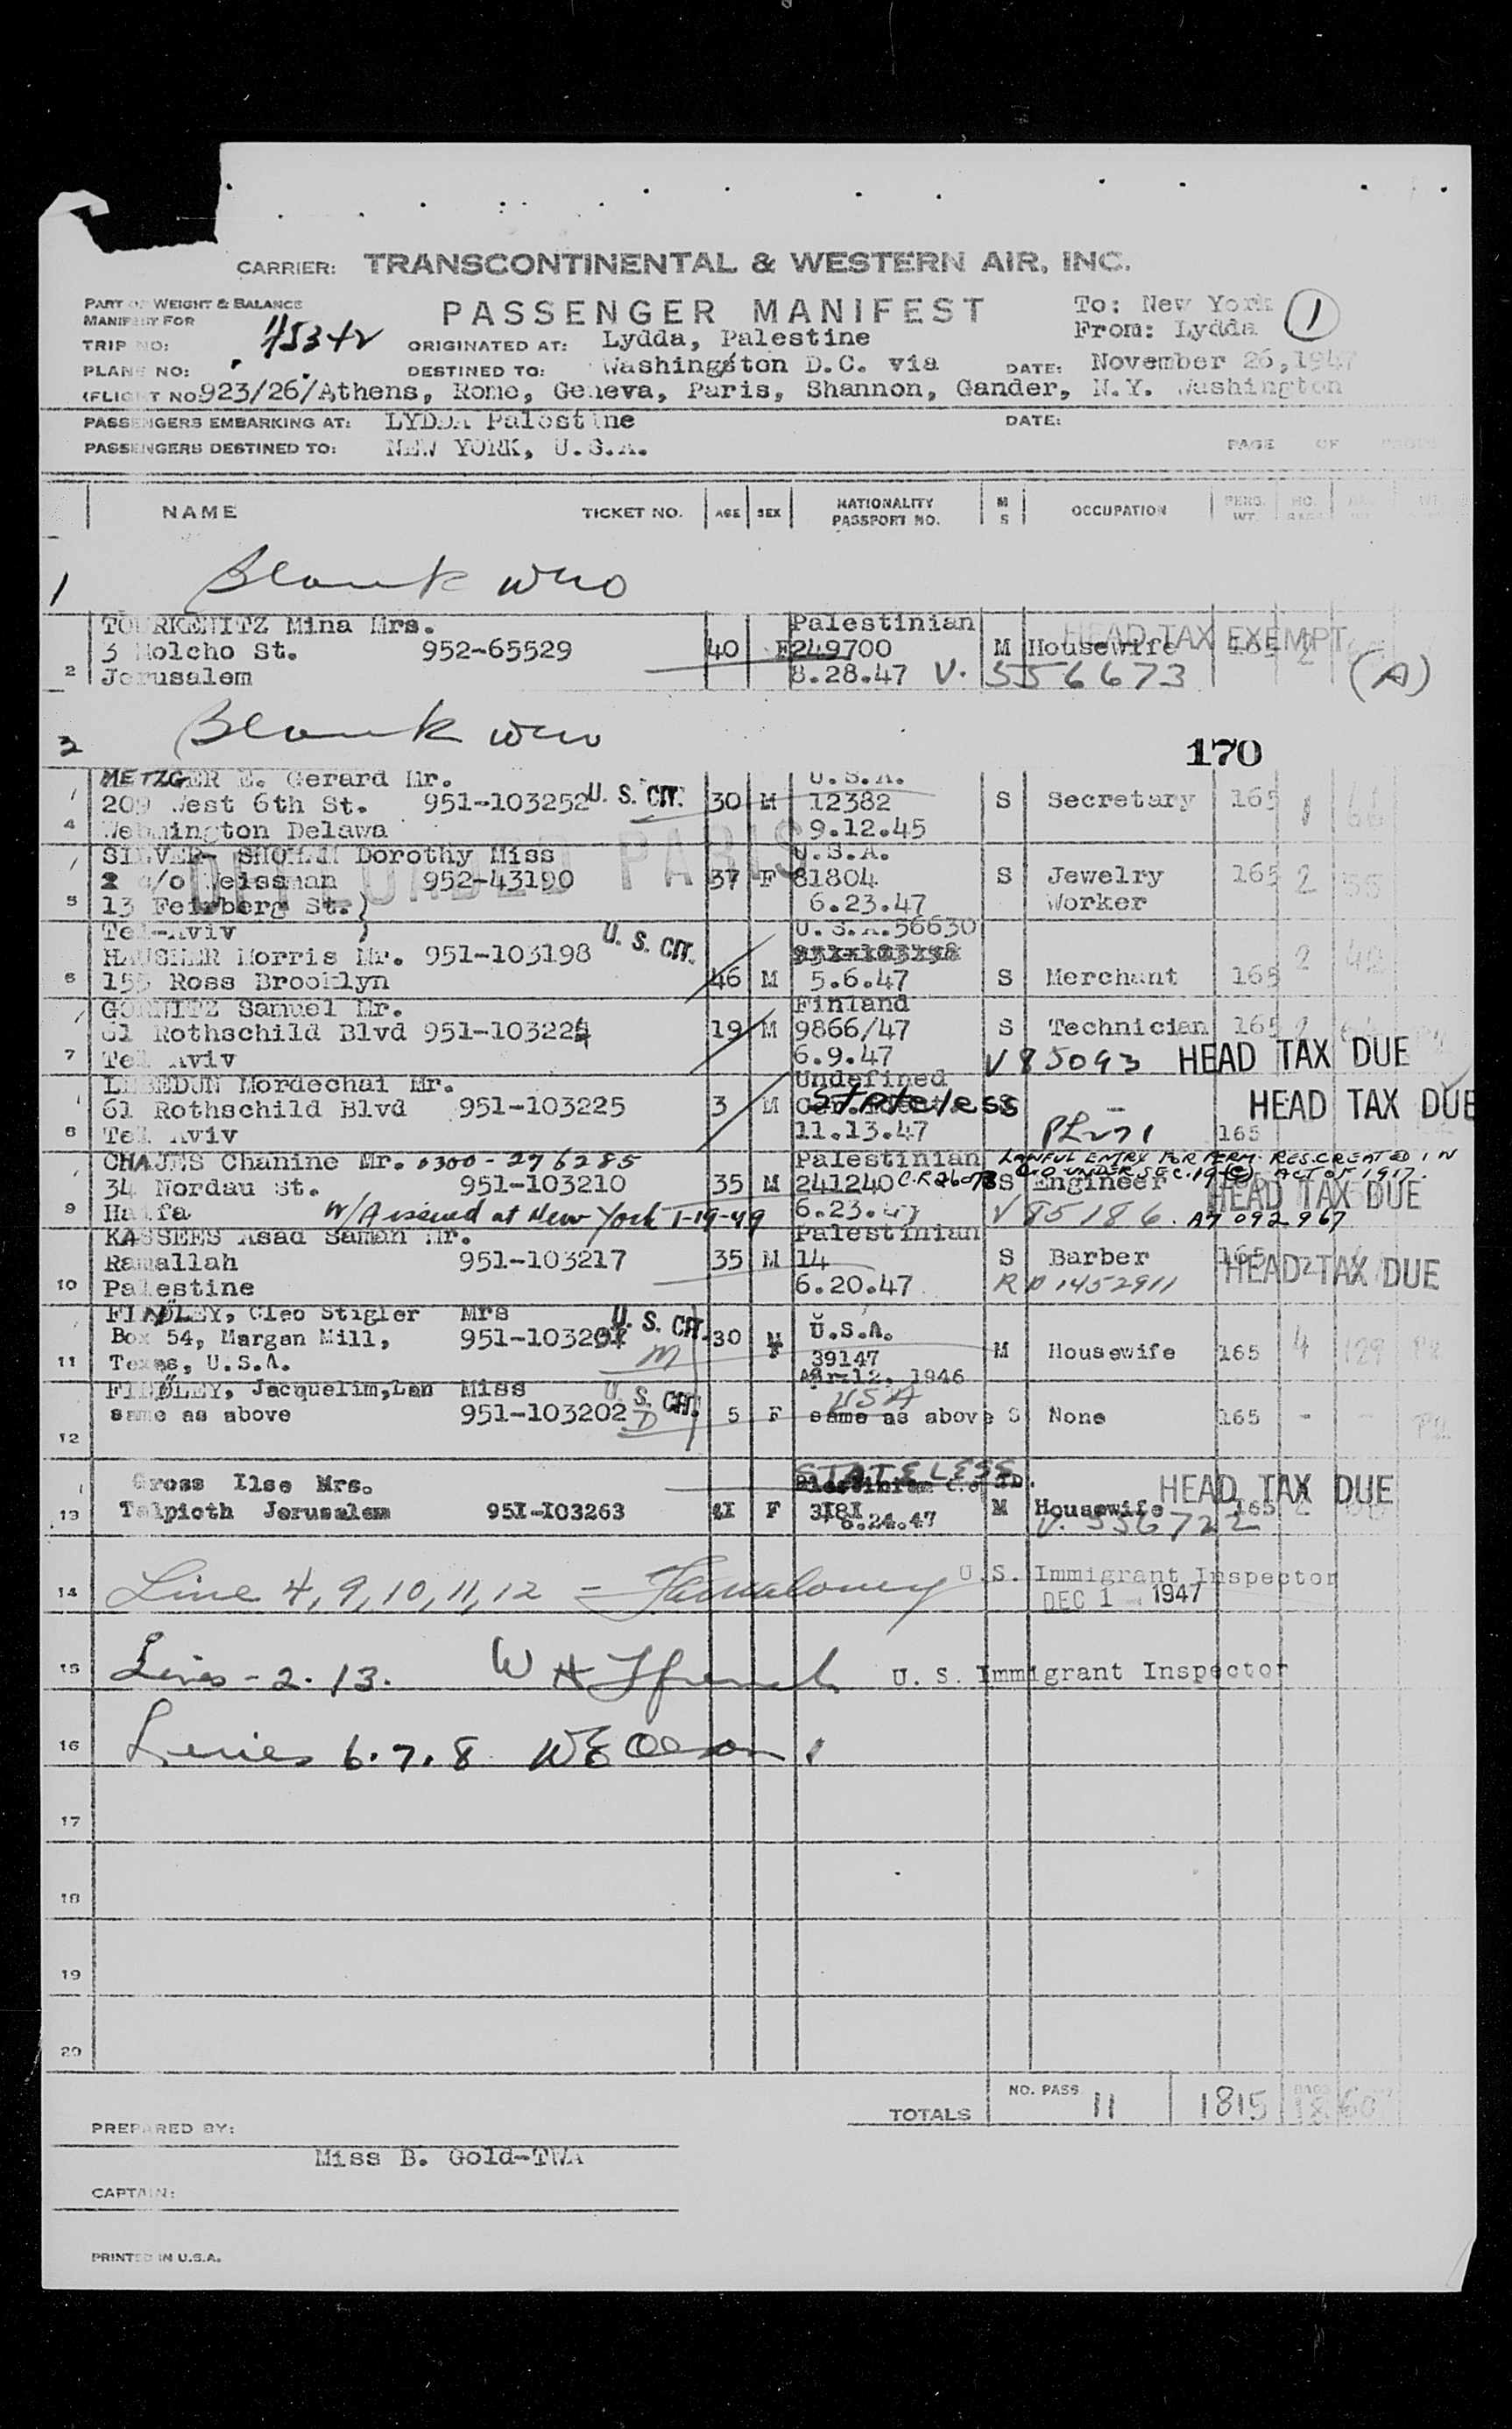 CARRIER: TRANSCONTINENTAL & WESTERN AIR, INC.
PART OF WEIGHT & BALANCE
MANIFEST FOR
PASSENGER MANIFEST
To: New York
From: Lydda
1
TRIP NO:
ORIGINATED AT: Lydda, Palestine
PLANE NO:
DESTINED TO: Washington D.C. via
DATE: November 26, 1947
(FLIGHT NO. 923/26/Athens, Rome, Geneva, Paris, Shannon, Gander, N.Y. Washington
PASSENGERS EMBARKING AT: LYDDA Palestine
DATE:
PASSENGERS DESTINED TO: NEW YORK, U.S.A.
PAGE OF PAGES
NAME TICKET NO. AGE SEX NATIONALITY PASSPORT NO. M S OCCUPATION PERS. WT. NO. BAGS
1 Blank
TOURKENITZ Mina Mrs. Palestinian HEAD TAX EXEMPT
3 Molcho St. 952-65529 40 F 249700 M Housewife 165 2
2 Jerusalem 8.28.47 V. 556673 (A)
3 Blank
170
METZGER E. Gerard Mr. U.S.A.
209 West 6th St. 951-103252 U. S. CIT. 30 M 12382 S Secretary 165 1 66
4 Delawa 9.12.45
SILVER- Dorothy Miss U.S.A.
c/o Weissman 952-43190 37 F 81804 S Jewelry 165 2 55
5 13 Feirberg St. 6.23.47 Worker
PARIS
Tel-Aviv U.S.A. 56630
HAUSNER Morris Mr. 951-103198 U. S. CIT. 951-103198
6 155 Ross Brooklyn 46 M 5.6.47 S Merchant 165 2 42
GORNITZ Samuel Mr. Finland
61 Rothschild Blvd 951-103224 19 M 9866/47 S Technician 165 2
7 Tel Aviv 6.9.47 V85093 HEAD TAX DUE
LEBEDUN Mordechai Mr. Undefined
61 Rothschild Blvd 951-103225 3 M Stateless S - HEAD TAX DUE
8 Tel Aviv 11.13.47 PL271 165
CHAJES Chanine Mr. 0300-276285 Palestinian LAWFUL ENTRY FOR PERM. RES. CREATED IN
C.O UNDER SEC. 19 (c) ACT OF 1917.
34 Nordau St. 951-103210 35 M 241240 C.R 26078 S Engineer HEAD TAX DUE
9 Haifa W/A issued at New York 1-19-49 6.23.47 V85186. A7 092 967
KASSEES Asad Saman Mr. Palestinian
Ramallah 951-103217 35 M 14 S Barber 165 2 HEAD TAX DUE
10 Palestine 6.20.47 1452911
FINDLEY, Cleo Stigler Mrs U. S. CIT. U.S.A.
Box 54, Margan Mill, 951-103201 30 F M Housewife 165 4 129
11 Texas, U.S.A. M 39147
Apr-12. 1946
FINDLEY, Jacquelim,Lan Miss U. S. CIT. USA
same as above 951-103202 D 5 F same as above S None 165 - -
12
Gross Ilse Mrs. STATELESS HEAD TAX DUE
13 Talpioth Jerusalem 95I-I03263 4I F 3I8I M Housewife 165
6.24.47 V. 556722
14 Line 4, 9, 10, 11, 12 - U.S. Immigrant Inspector
DEC 1 - 1947
15 Lines - 2. 13. U. S. Immigrant Inspector
16 Lines 6.7.8
17
18
19
20
TOTALS NO. PASS 11 1815
PREPARED BY:
Miss B. Gold-TWA
CAPTAIN:
PRINTED IN U.S.A.